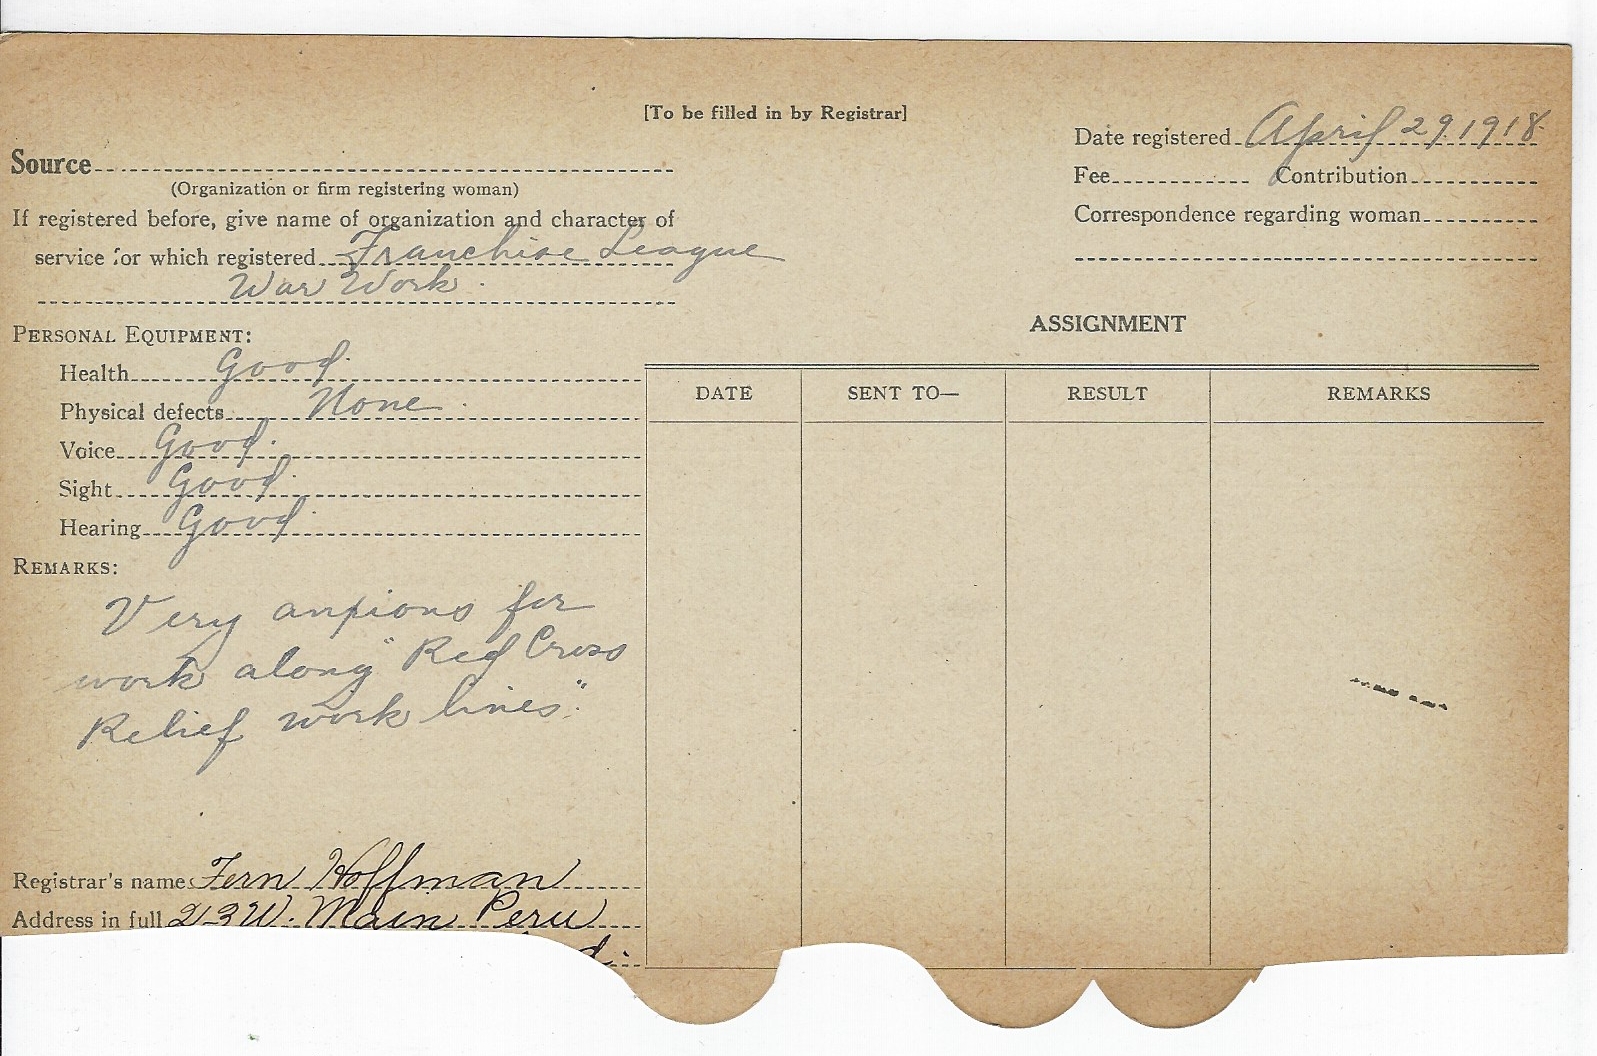 [To be filled in by Registrar]
Date registered April 29. 1918
Source
(Organization or firm registering woman)
Fee Contribution
If registered before, give name of organization and character of
Correspondence regarding woman
service for which registered Franchise League
War Work.
ASSIGNMENT
PERSONAL EQUIPMENT:
Health Good.
Physical defects None.
Voice Good.
Sight Good.
Hearing Good.
DATE SENT TO— RESULT REMARKS
REMARKS:
Very anxious for
work along "Red Cross
Relief work lines."
Registrar's name Fern Hoffman
Address in full 23 W. Main Peru